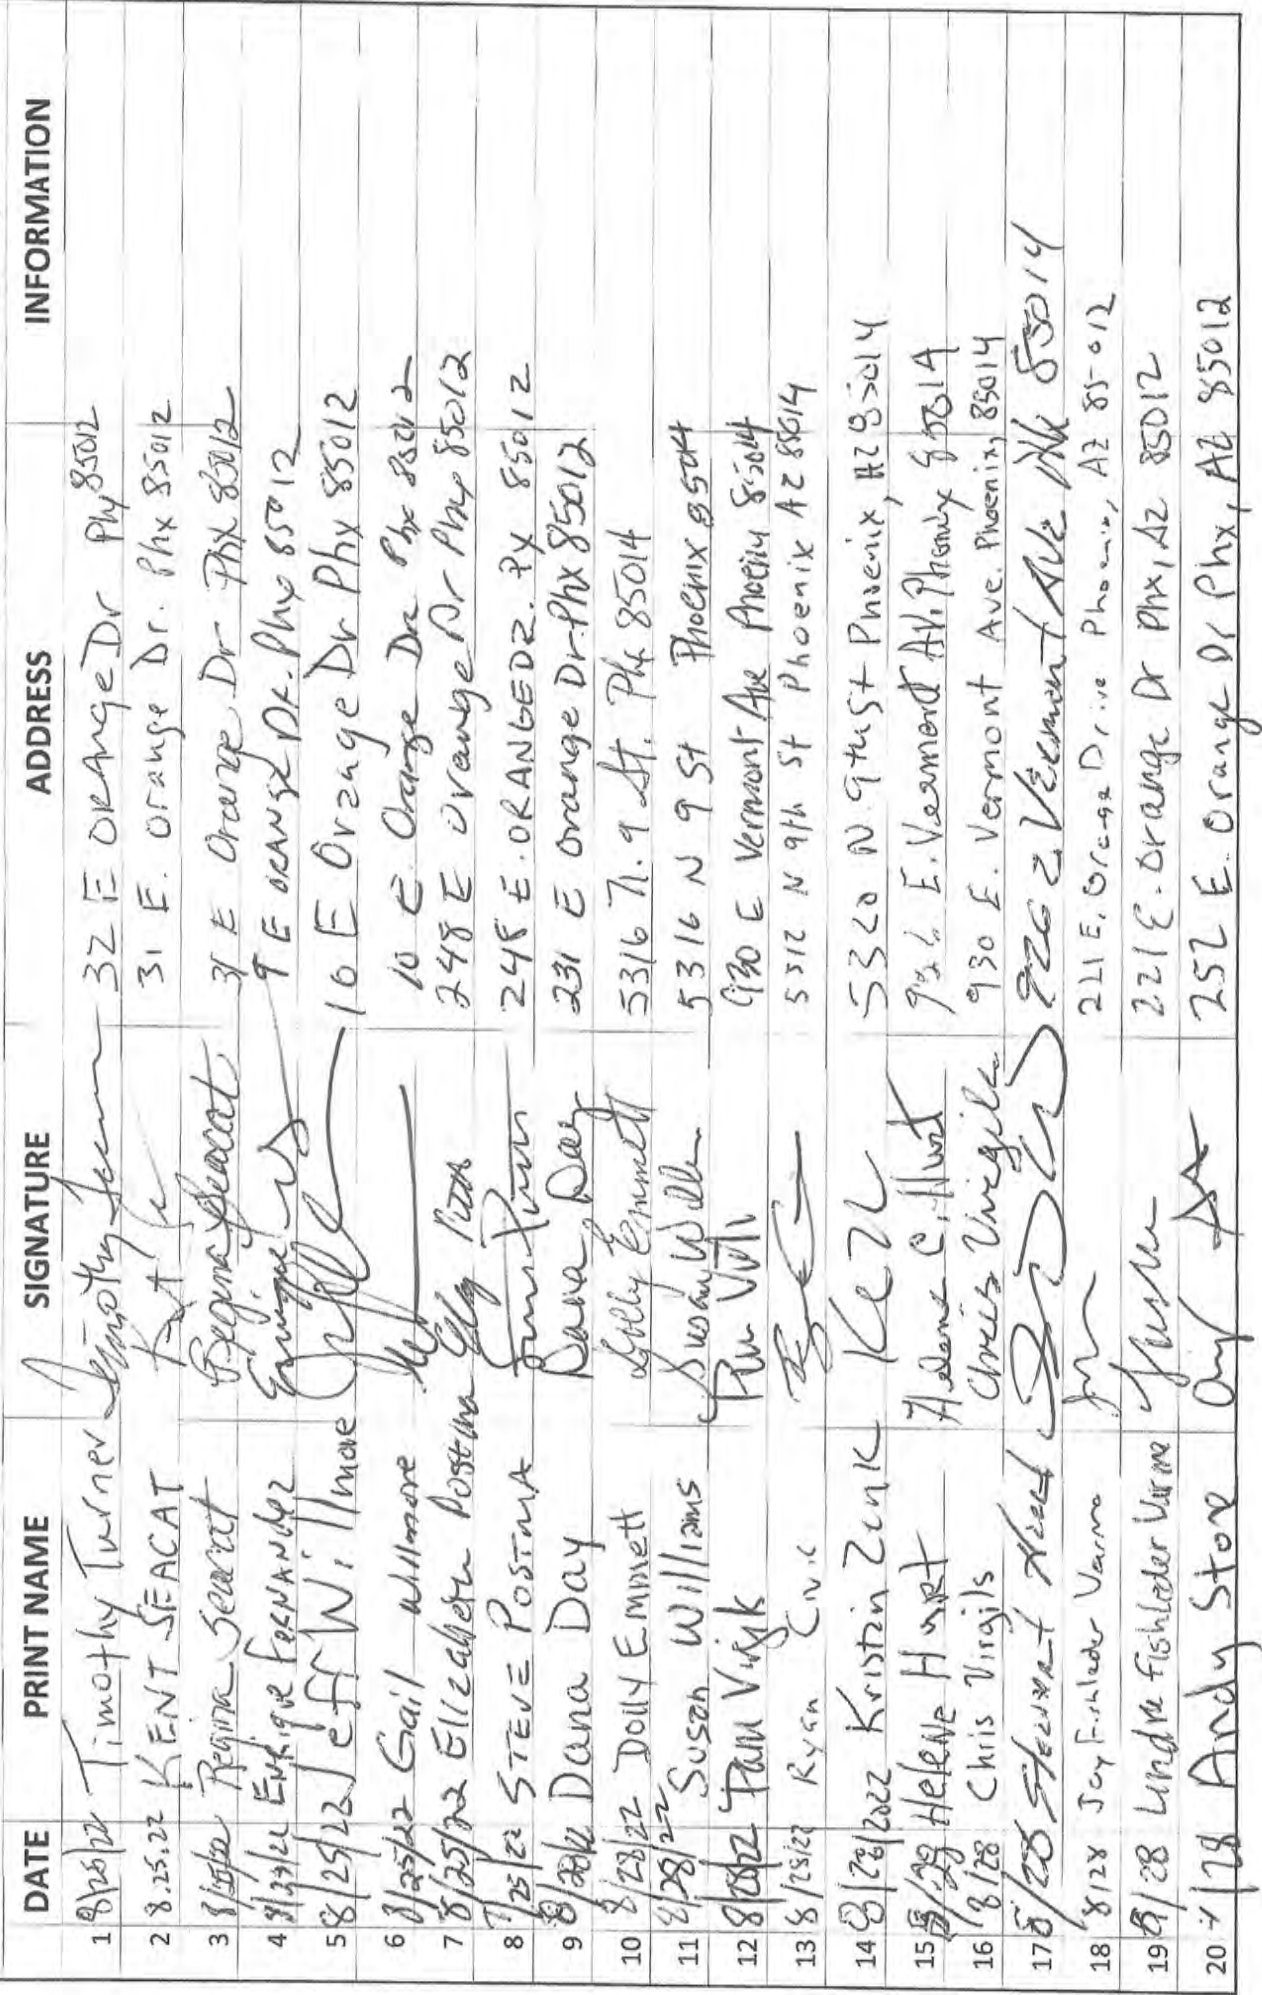 DATE PRINT NAME SIGNATURE ADDRESS INFORMATION
1 8/25/22 Timothy Turner 32 E ORANGE Dr Phx 85012
2 8.25.22 KENT SEACAT 31 E. Orange Dr. Phx 85012
3 8/25/22 Regina Seacat Regina Seacat 31 E Orange Dr Phx 85012
4 Enrique Fernandez Enrique 9 E ORANGE DR. Phx 85012
5 8/25/22 Jeff Willmore 10 E Orange Dr Phx 85012
6 8/25/22 Gail Willmore 10 E. Orange Dr Phx 85012
7 8/25/22 Elizabeth Postma 248 E Orange Dr Phx 85012
8 /25/22 STEVE POSTMA 248 E. ORANGE DR. Px 85012
9 Dana Day Dana Day 231 E Orange Dr. Phx 85012
10 8/28/22 Dolly Emmett Dolly Emmett 5316 N. 9 St. Phx 85014
11 8/28/22 Susan Williams Susan 5316 N 9 St Phoenix 85014
12 8/28/22 Pam 930 E Vermont Ave Phoenix 85014
13 8/28/22 Ryan Civic 5312 N 9th St Phoenix AZ 85014
14 8/28/2022 Kristin Zunk 5320 N. 9th St Phoenix, AZ 85014
15 Helene Hurt Helene C. Hurt E. Vermont AV. Phoenix 85014
16 8/28 Chris Virgils Chris Virgils 930 E. Vermont Ave. Phoenix, 85014
17 8/28 Stewart 926 E. Vermont Ave Phx 85014
18 8/28 Jay Fishleder Varma 221 E. Orange Drive Phoenix, AZ 85012
19 8/28 Lindra Fishleder Varma 221 E. Orange Dr Phx, Az 85012
20 /28 Andy Stone 252 E. Orange Dr Phx, AZ 85012